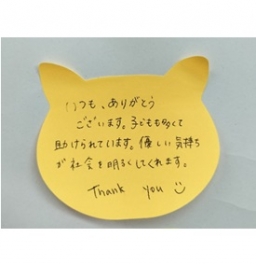 いつも、ありがとう
ございます。子どもも多くて
助けられています。優しい気持ち
が社会を明るくしてくれます。
Thank you ☺